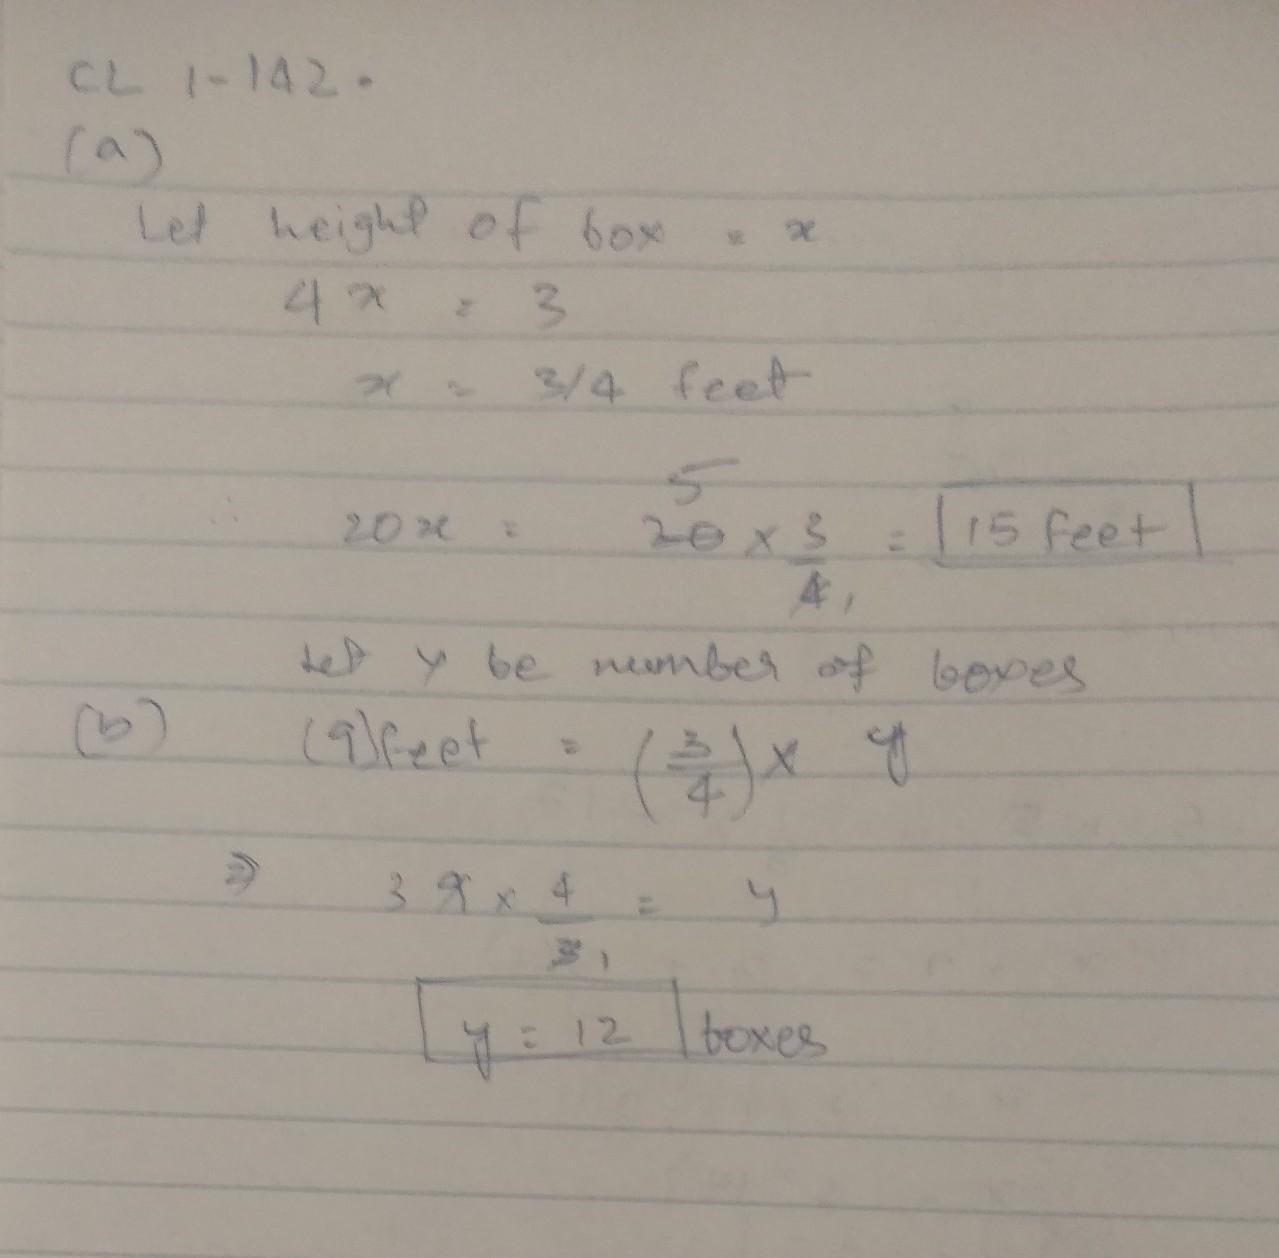 CL 1-142.
(a)
Let height of box = x
4x = 3
x = 3/4 feet
5
∴ 20x = 20 × 3/4 = 15 feet
1
Let y be number of boxes
(b) (9)feet = (3/4) × y
⇒ 3 9 × 4/3 = y
1
y = 12 boxes